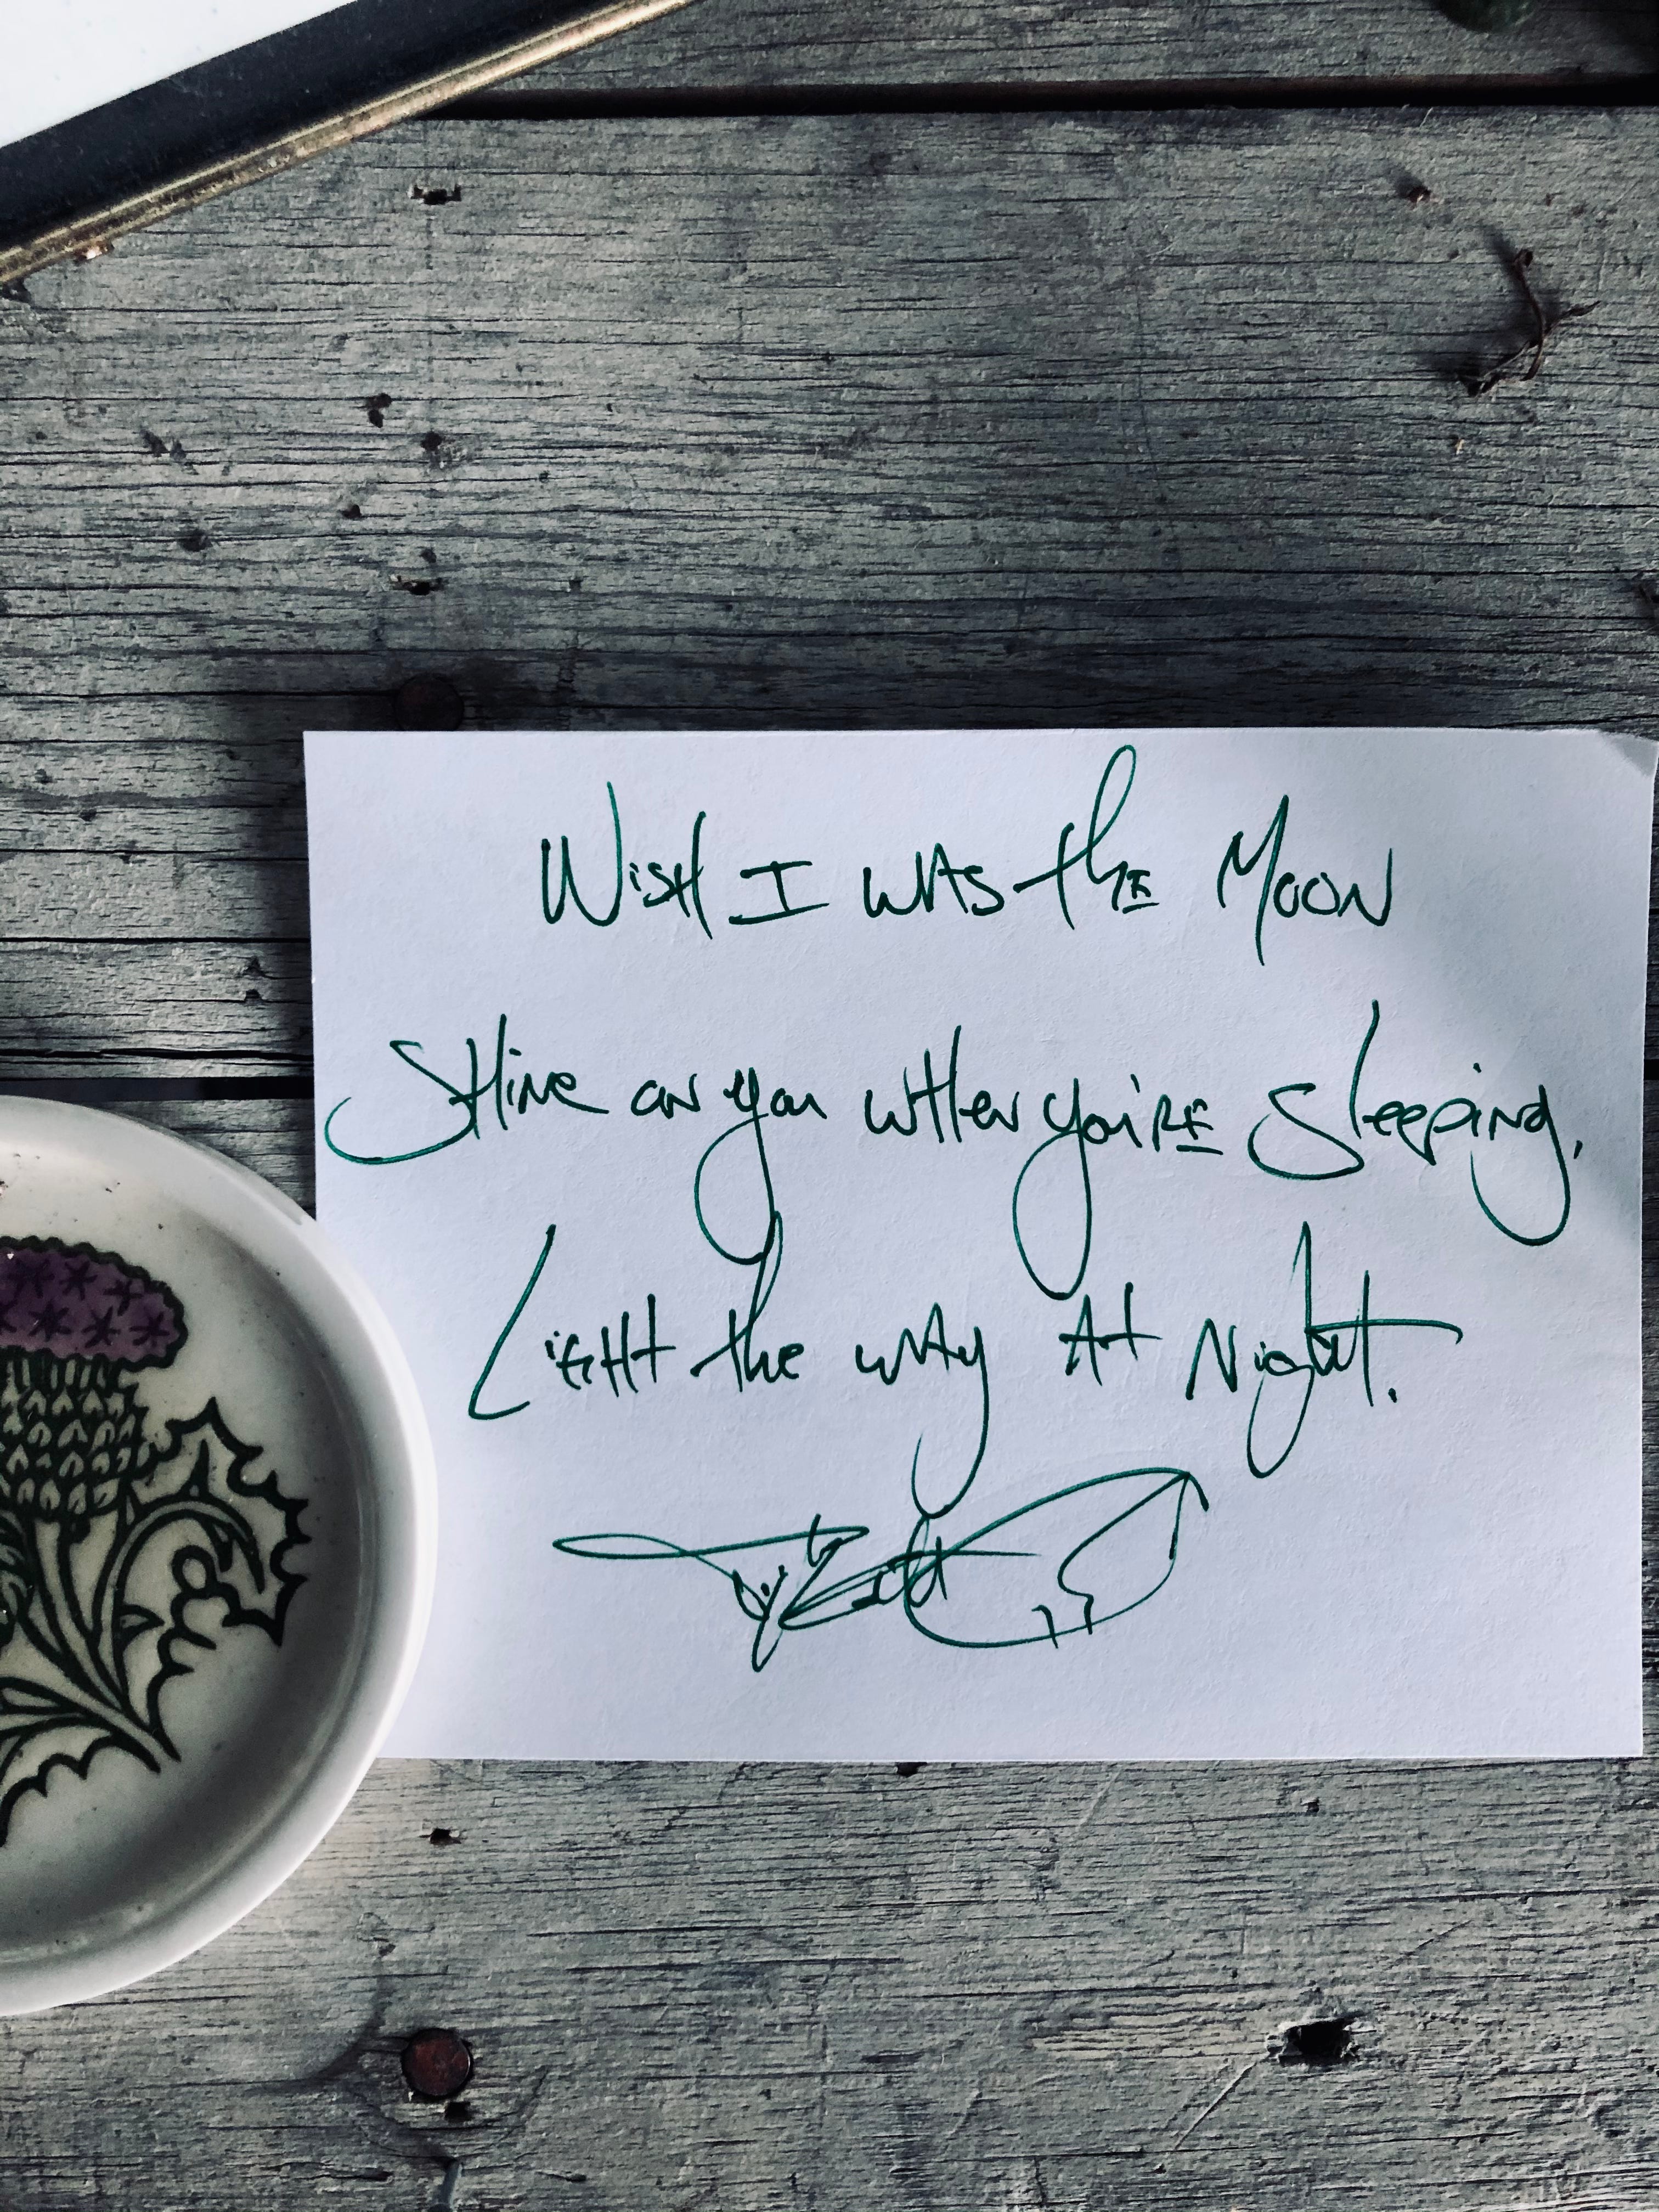 Wish I was the Moon
Shine on you when you're Sleeping.
Light the way At Night.